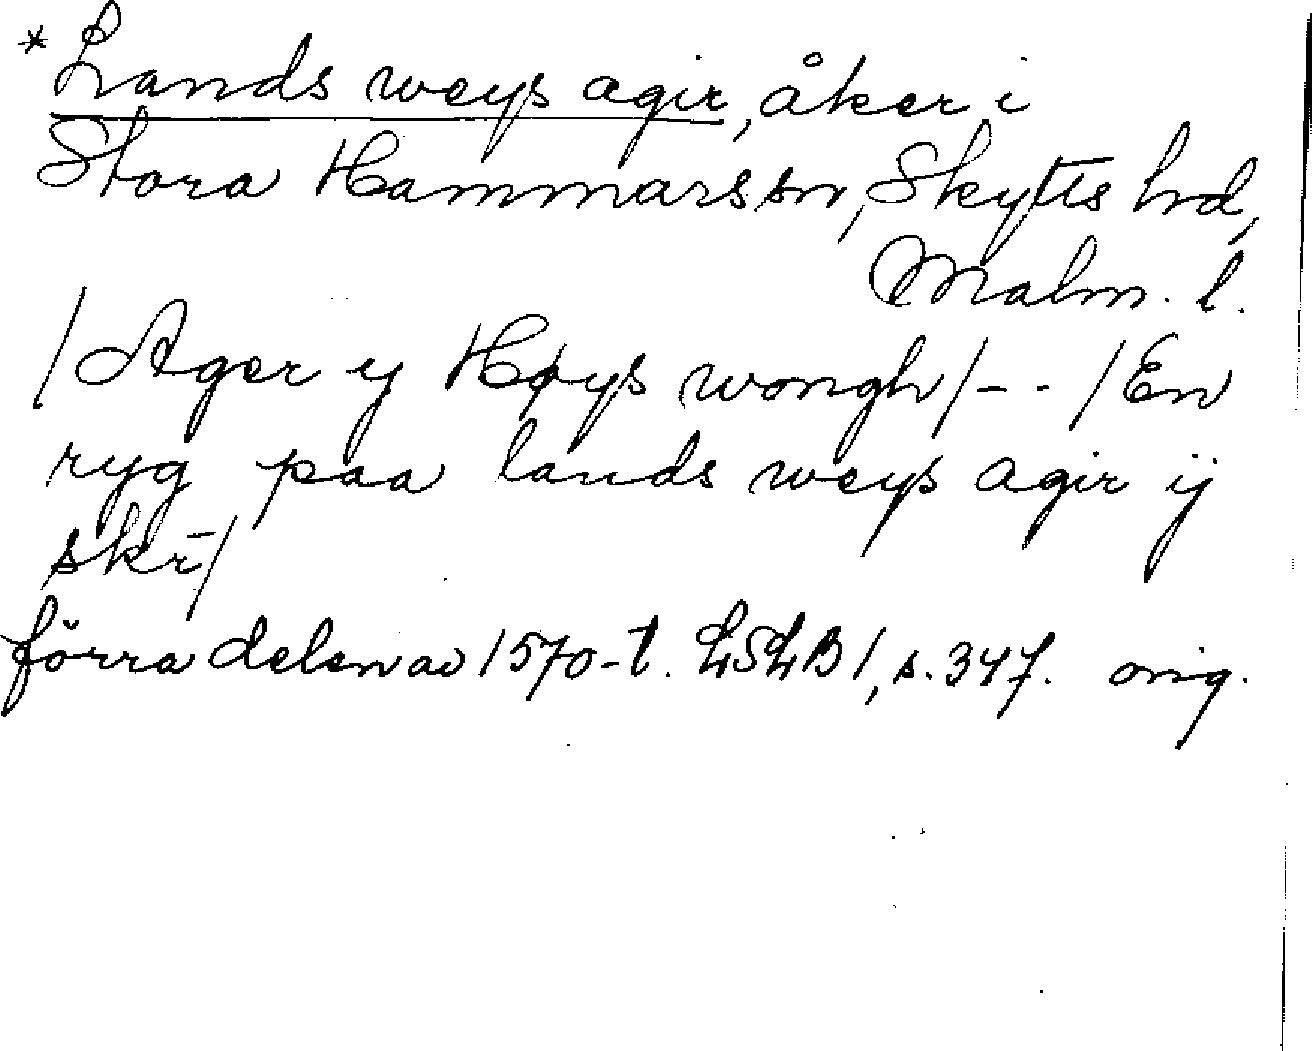 * Lands weys agir, åker i
Stora Hammars sn, Skytts hd,
Malm. l.
/Ager y Høys wongh/ - - /En
ryg paa lands weys agir ij
skr̄/
förra delen av 1570-t. LSLB 1, s. 347. orig.